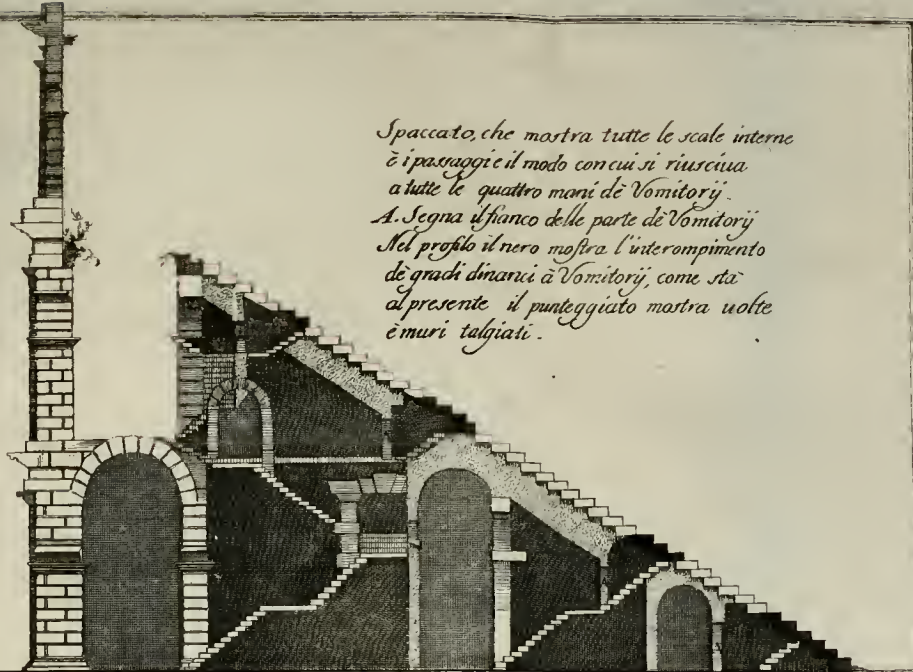 Spaccato, che mostra tutte le scale interne
è i passaggi e il modo con cui si riusciua
a tutte le quattro mani dè Vomitorij.
A. Segna il fianco delle parte dè Vomitorij
Nel profilo il nero mostra l'interompimento
de gradi dinanci à Vomitorij, come stà
al presente il punteggiato mostra uolte
è muri talgiati.